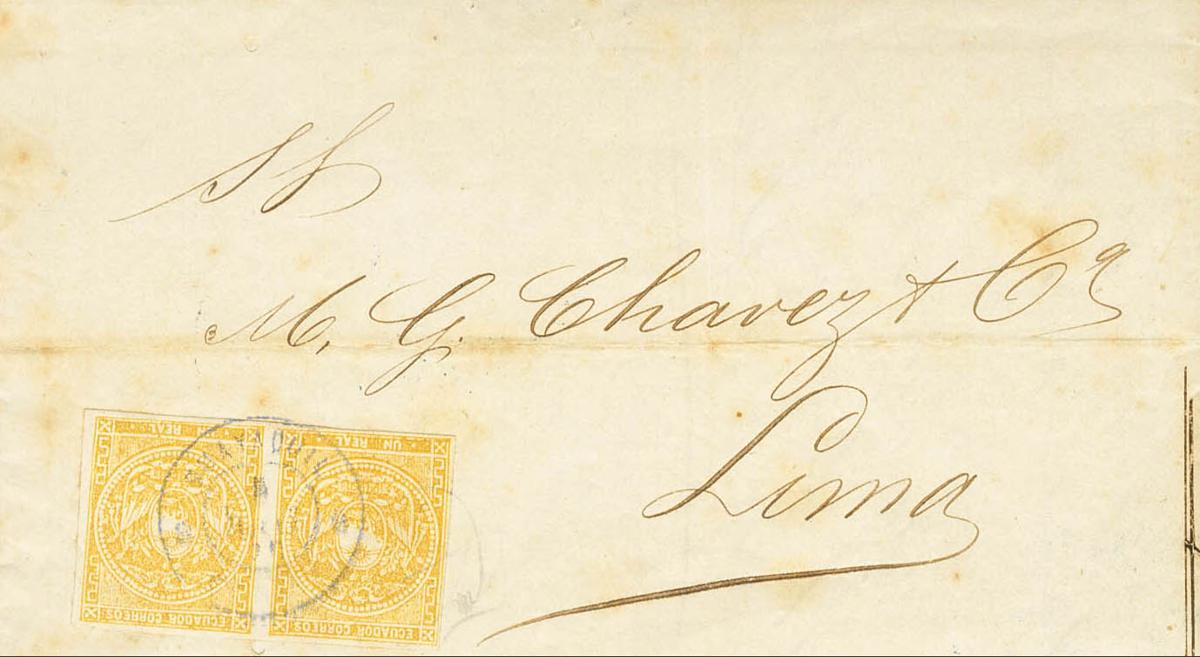 SS
M, G. Chavez & Cª
Lima
UN REAL
UN REAL
GUAYAQUIL
ECUADOR CORREOS
ECUADOR CORREOS